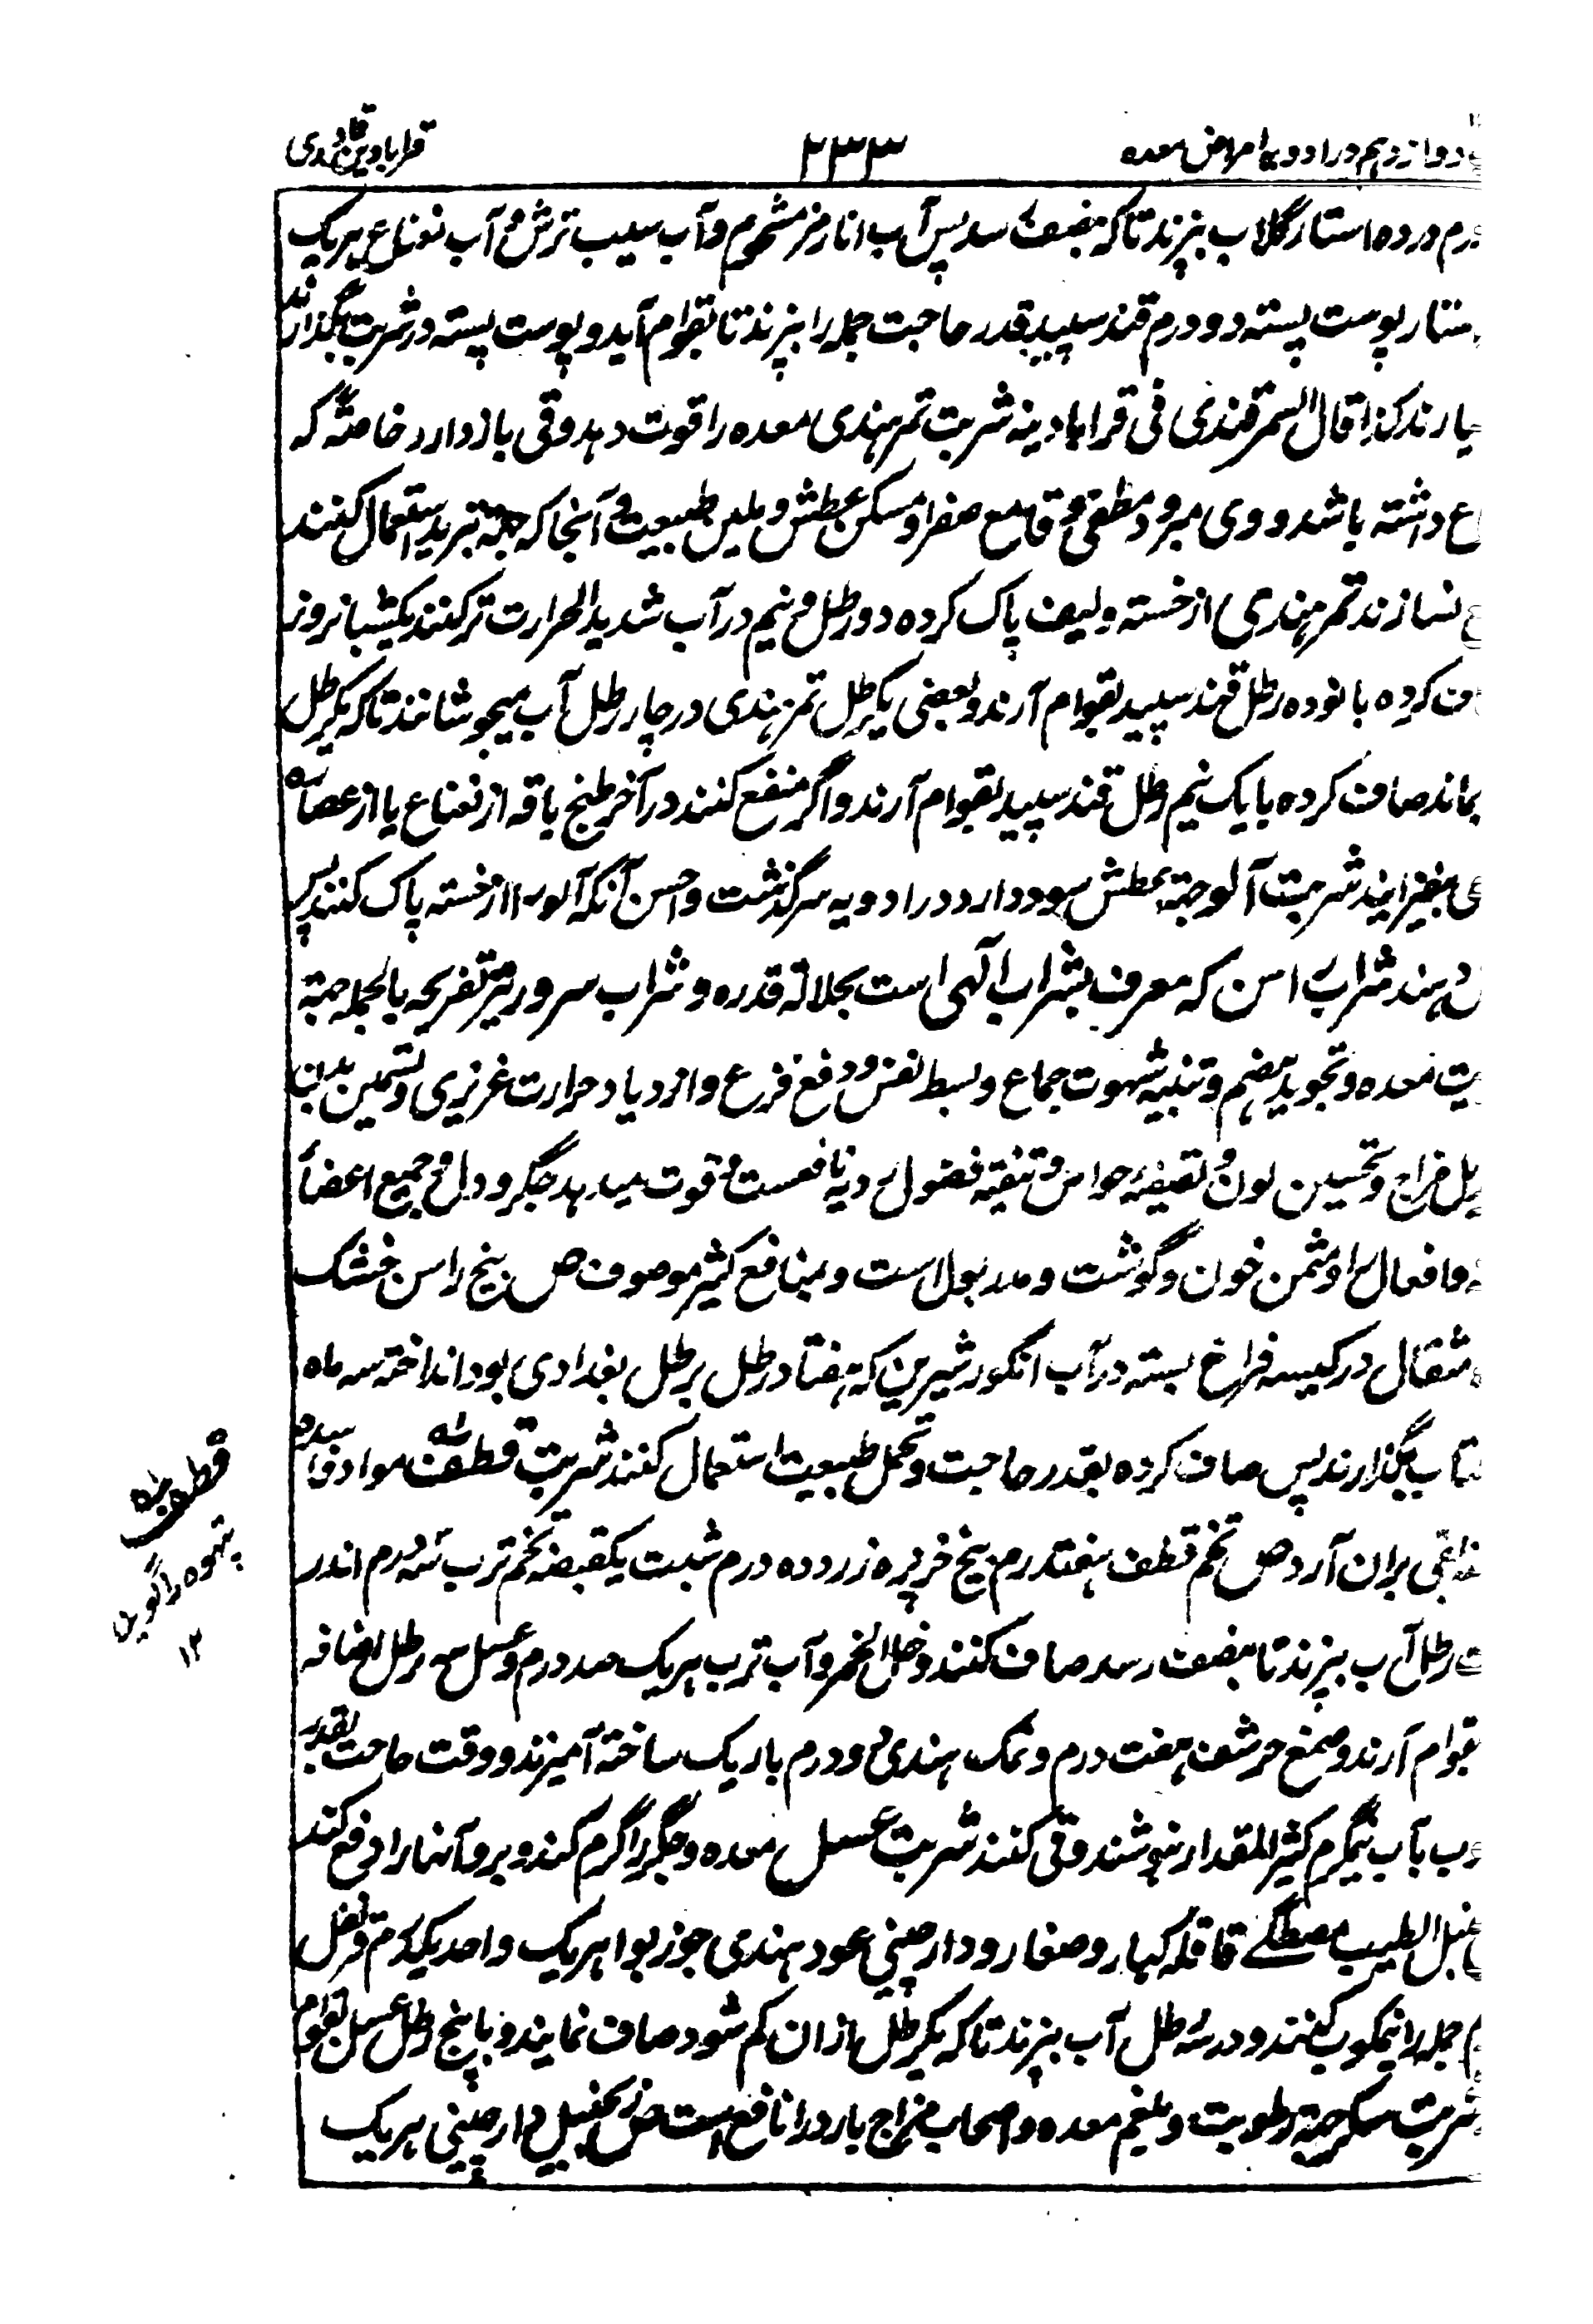 دوازدهم در ادویه امراض معده ۲۳۳ قرابادین قادری
درم در ده استار گلاب بپزند تا که بنصف رسد پس آب انار مز مشحوم و آب سیب ترش و آب نعناع هریک
ستار پوست پسته دو درم قند سپید بقدر حاجت جمله را بپزند تا بقوام آید و پوست پسته در شربت بگذارند
کذا قال السمرقندی فی قراباذینه شربت تمر هندی معده را قوت دهد و قی باز دارد خاصةً که
داشته باشد و وی مبرد و مطفی و قامع صفرا و مسکن عطش و ملین طبیعت و آنجا که جهة تبرید استعمال کنند
نسازند تمر هندی از خسته و لیف پاک کرده دو رطل و نیم در آب شدید الحرارت تر کنند یکشبانروز
کرده با نوده رطل قند سپید بقوام آرند و بعضی یکرطل تمر هندی در چار رطل آب میجوشانند تا که یکرطل
بماند صاف کرده با یک نیم رطل قند سپید بقوام آرند و اگر منفع کنند در آخر طبخ باقه از نعناع یا از عصاره
بیفزایند شربت آلو جهة عطش سود دارد در ادویه سر گذشت و احسن آنکه آلو را از خسته پاک کنند پس
دهند شراب راسن که معرف بشراب الٰهی است بجلالة قدره و شراب سرور تفریحه بالجمله جهة
معده و تجوید هضم و تنبیه شهوت جماع و بسط نفس و دفع فزع و ازدیاد حرارت غریزی و تسمین بدن
مزاج و تحسین لون و تصفیه حواس و تنقیه فضول ردیه نافعست و قوت میدهد جگر و دل و جمیع اعضا
و افعال را و مثمن خون و گوشت و مدر بول است و بمنافع کثیر موصوف ص بیخ راسن خشک
مثقال در کیسه فراخ بسته در آب انگور شیرین که هفتاد رطل برطل بغدادی بود انداخته سه ماه
بگذارند پس صاف کرده بقدر حاجت و تحمل طبیعت استعمال کنند شربت قطف مواد فاسده
بر آن آرد ص تخم قطف هفتدرم بیخ خرپزه زرد ده درم شبت یکقبضه تخم ترب سه درم اندر
رطل آب بپزند تا بنصف رسد صاف کنند و خل الخمر و آب ترب هریک صد درم و عسل سه رطل اضافه
بقوام آرند و صمغ حرشف هفت درم و نمک هندی دو درم باریک ساخته آمیزند و وقت حاجت بقدر
بآب نیمگرم کثیر المقدار بنوشند و قی کنند شربت عسل معده و جگر را گرم کند و بروآنها را دفع کند
سنبل الطیب مصطگے قاقله کبار و صغار و دارچینی عود هندی جوز بوا هریک واحد یکدرم قرنفل
جمله را نیمکوب کنند و در سه رطل آب بپزند تا که یکرطل ازان کم شود صاف نمایند و با پنج رطل عسل بقوام
شربت سکر جهة رطوبت و بلغم معده و اصحاب مزاج بارد را نافع است ص زنجبیل دارچینی هریک
قطف
بتهوه را گویند
۱۲